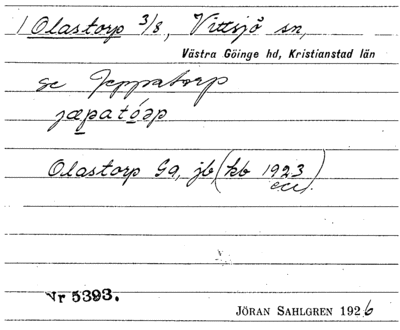 1 Olastorp 3/8, Vittsjö sn,
Västra Göinge hd, Kristianstad län
se Jeppatorp
jæpatóap
Olastorp Gg, jb (kb 1923
ecu).
Nr 5393.
JÖRAN SAHLGREN 1926